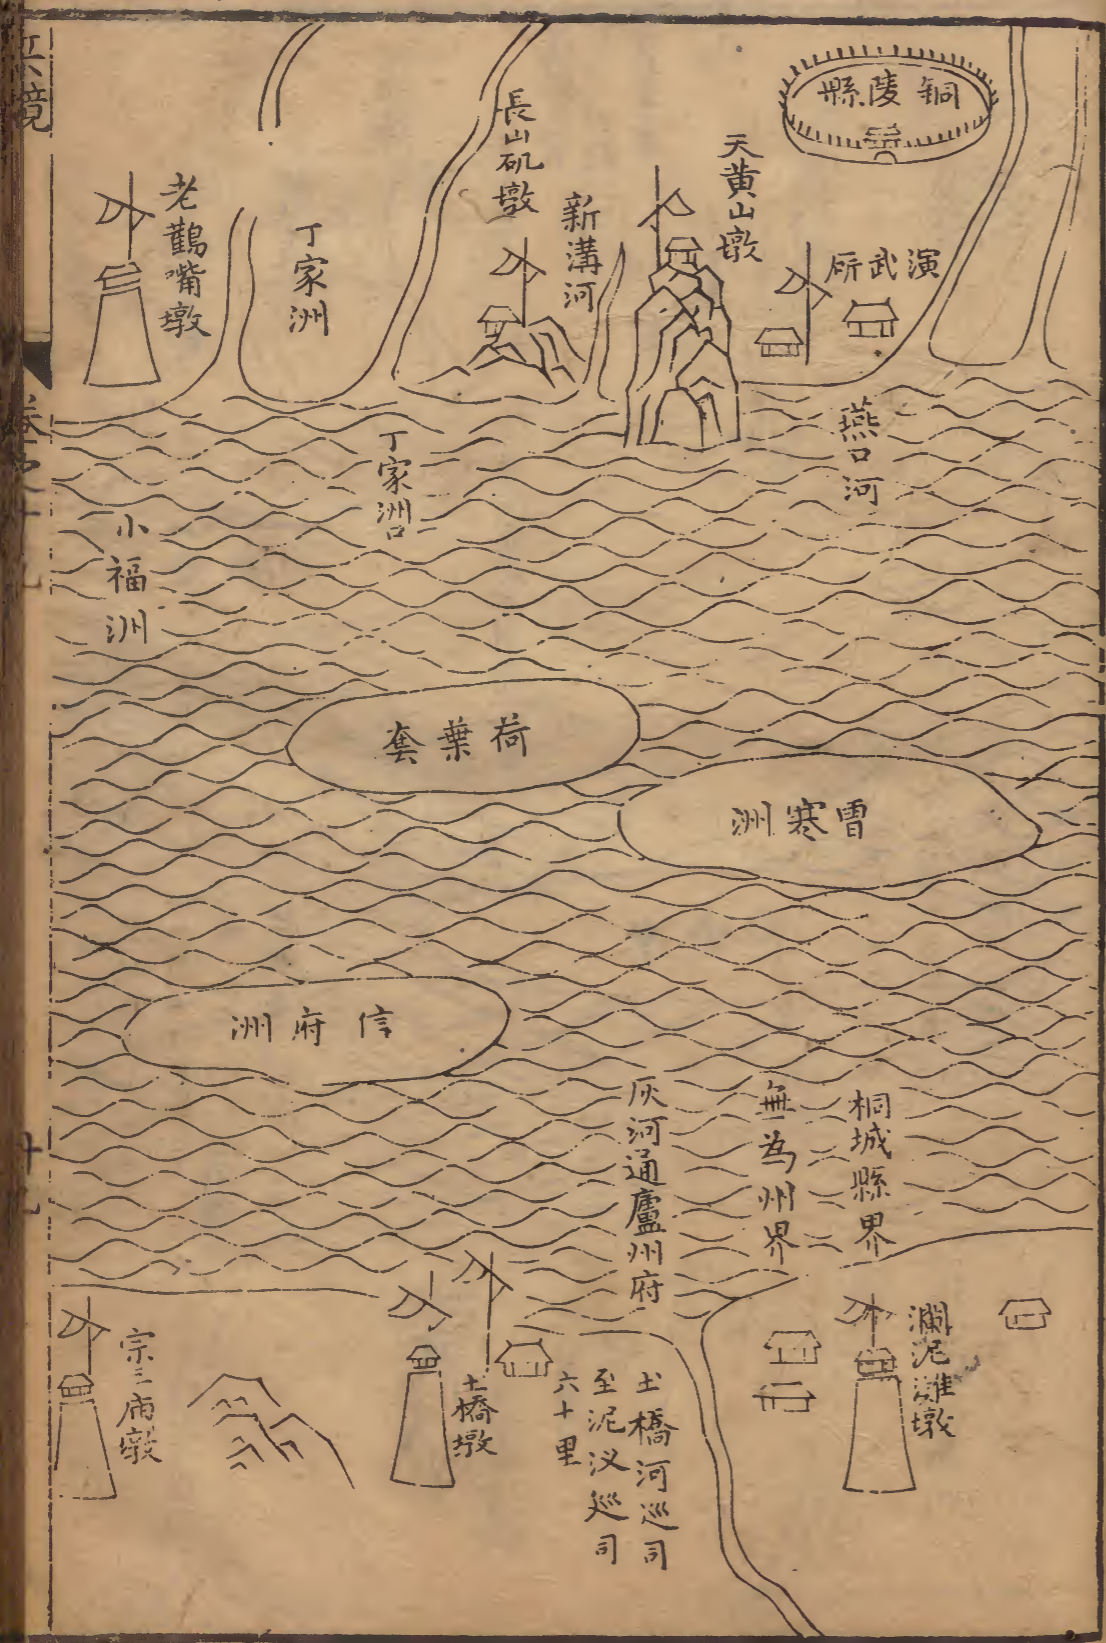 銅陵縣
演武所
天黄山墩
燕口河
新溝河
長山矶墩
丁家洲
老鸛嘴墩
丁家洲口
小福洲
荷葉套
曺寒洲
信府洲
桐城縣界
無為州界
灰河通廬州府
瀾泥灘墩
土橋河巡司
至泥汊巡司
六十里
土橋墩
宗三庙墩